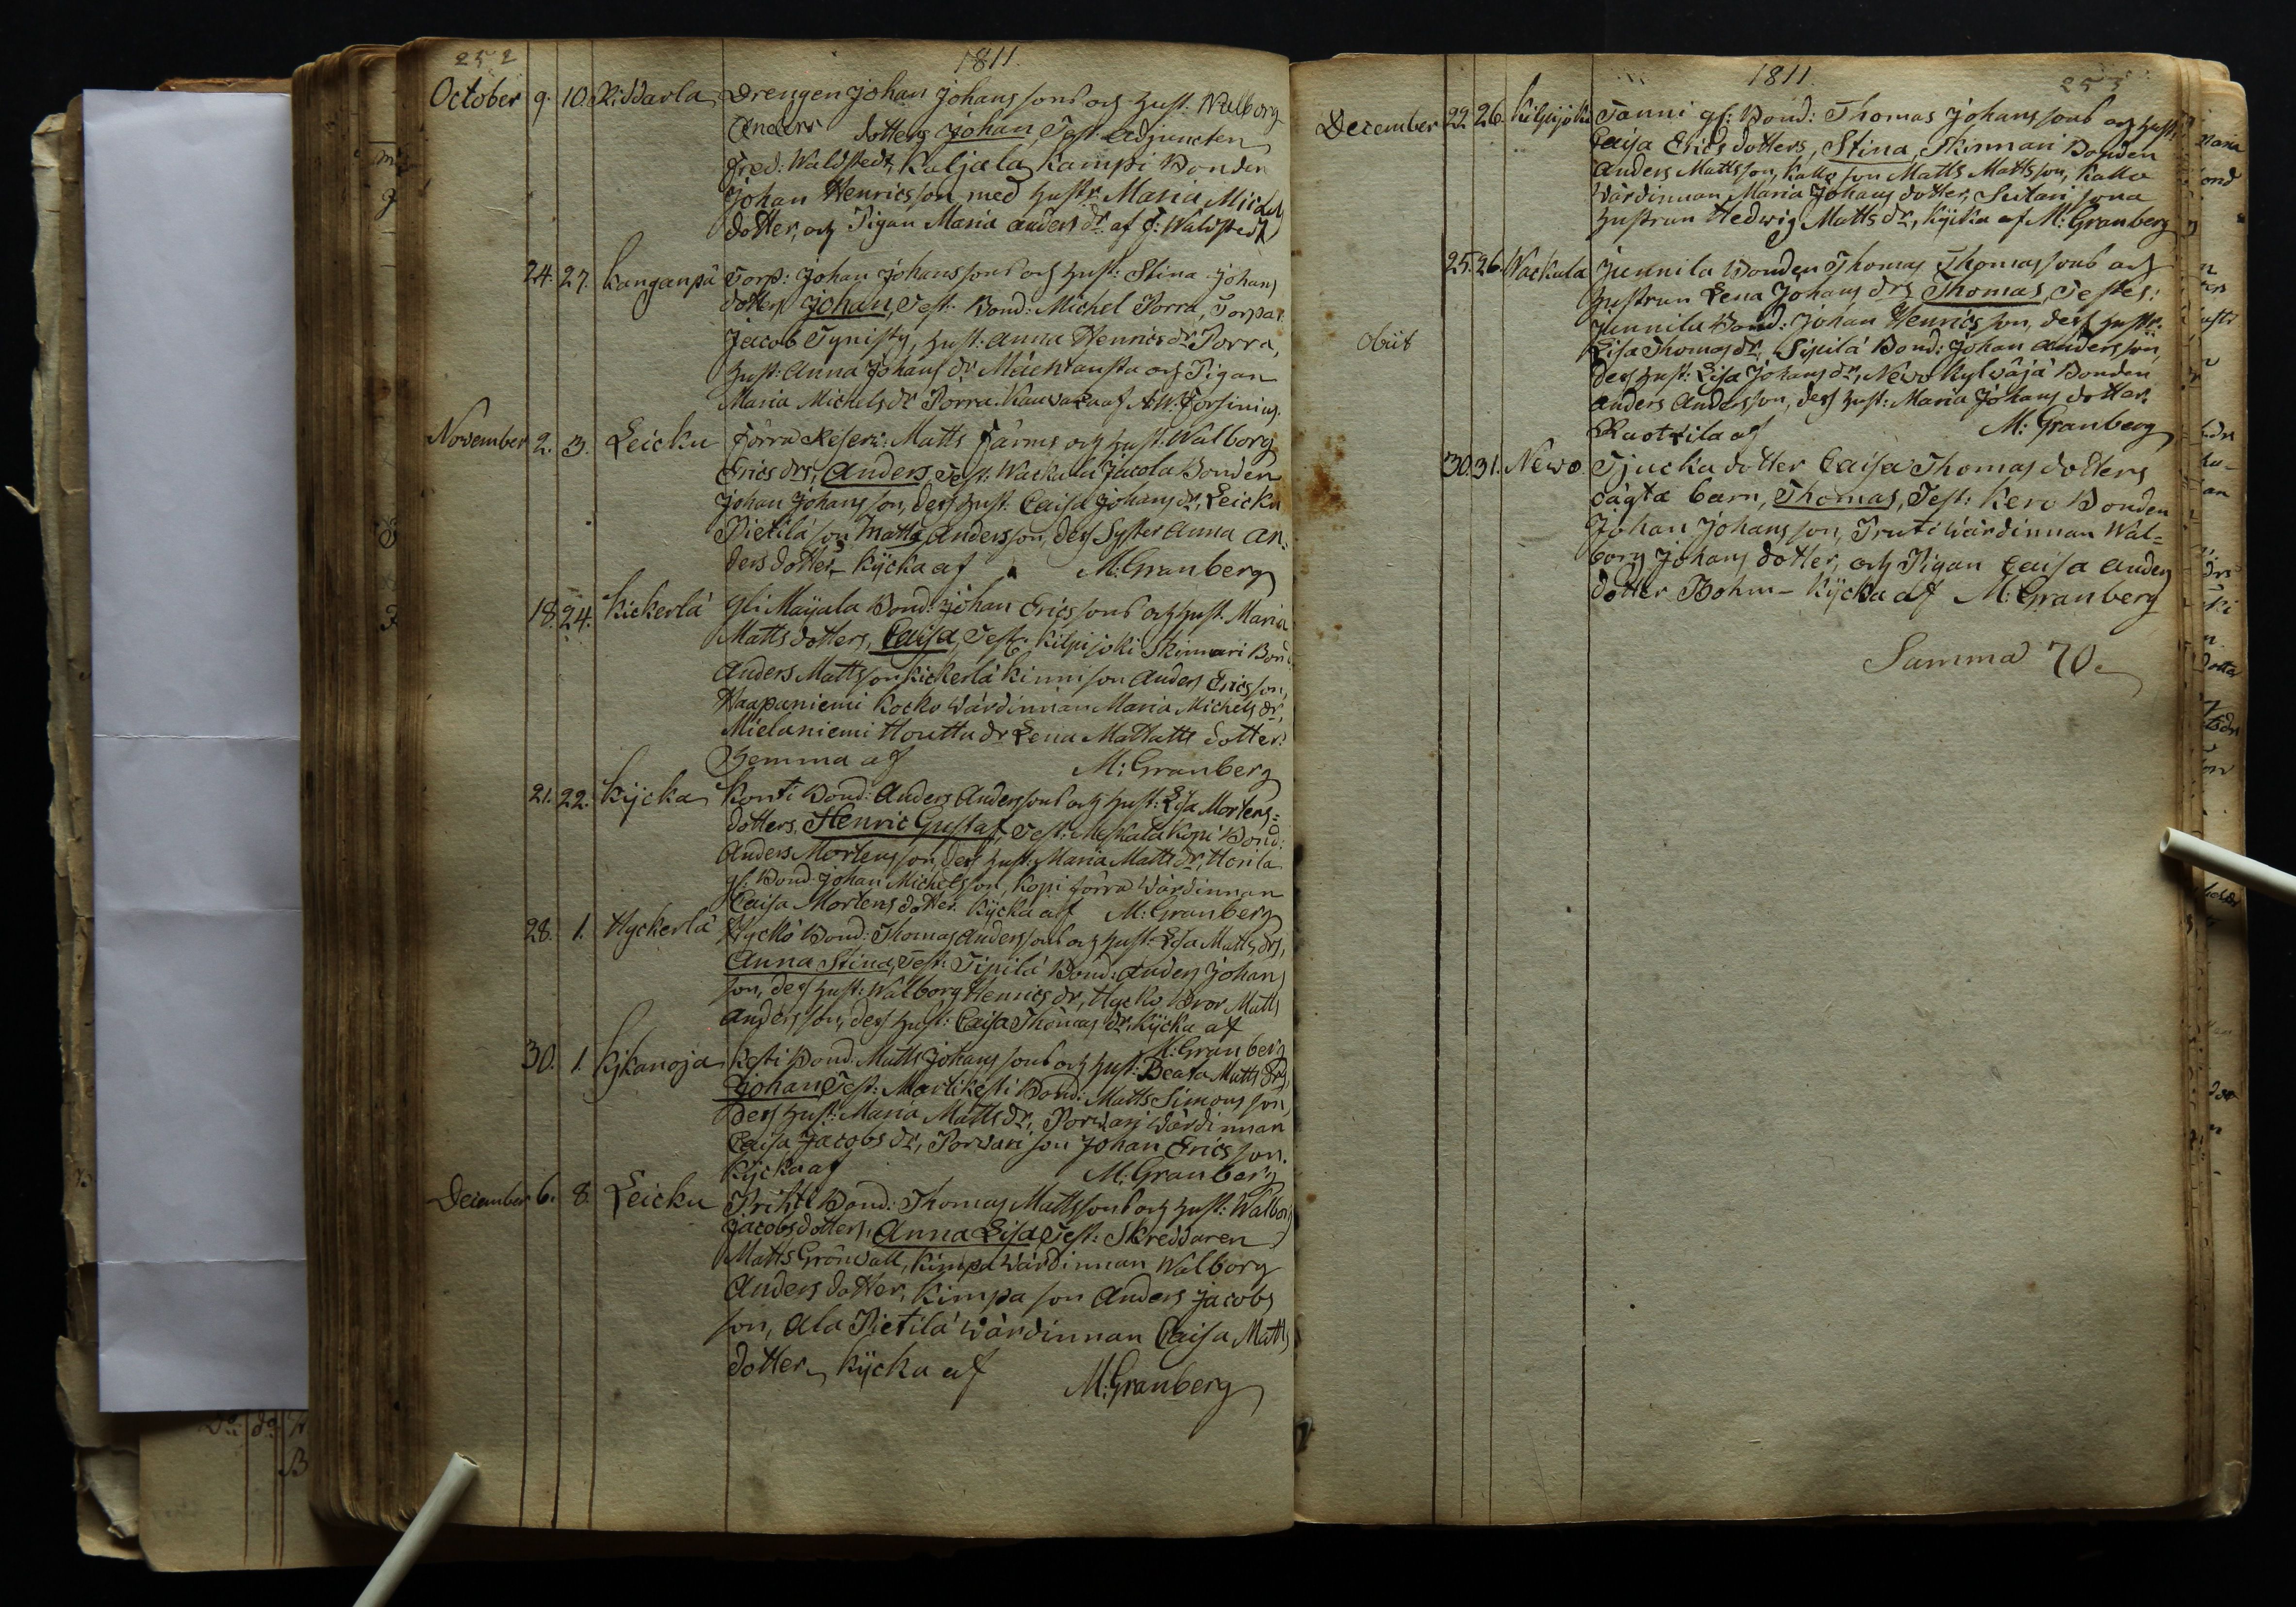 252
1811.
October 9. 10. Riddarla Drengen Johan Johanssons och hust. Walborg
Anders dotters Johan, Test. Adjuncten
Fred: Waldstedt, Kaljala Kamppi Bonden
Johan Henricsson med hustr. Maria Michels
dotter, och Pigan Maria Anders dr. af F: Waldstedt
24. 27. Kanganpä Torp: Johan Johanssons och hust: Stina Johans
dotters Johan, Test: Bond: Michel Porra, Torpar.
Jacob Tynisty, hust: Anna Henrics dr Porra,
hust: Anna Johans dr och Pigan
Maria Michels dr Porra. af A.W. Forsinius.
November 2. 3. Leicku Förra Reserv: Matts Färms och hust. Walborg
Erics drs, Anders, Test: Wackula Jacola Bonden
Johan Johansson, dess hust. Caisa Johans dr, Leicku
Pietilä son Matts Andersson, dess Syster Anna An-
ders dotter, Kÿcka af M. Granberg
18. 24. Kickerlä Yli Maÿala Bond: Johan Ericssons och hust. Maria
Matts dotters, Caisa, Test. Kilpijoki Skinnari Bond.
Anders Mattsson, Kickerlä Kinni son Anders Ericsson,
Haapaniemi Kocko Wärdinnan Maria Michels dr,
Mielaniemi Houttu dr Lena Mattatts dotter.
Hemma af M: Granberg
21. 22. Kÿcka Konti Bond: Anders Anderssons och hust: Lisa Mortens-
dotters, Henric Gustaf, Test: Meskala Kopi Bond:
Anders Mortensson, dess hust: Maria Matts dr, Horila
gl: Bond Johan Michelsson, Kopi förra Wärdinnan
Caisa Mortens dotter. Kÿcka af M: Granberg
28. 1. Hyckerlä Hycko Bond: Thomas Anderssons och hust: Lisa Matts drs,
Anna Stina, Test: Sipilä Bond: Anders Johans
son, dess hust: Walborg Henrics dr, Hycko Bror Matts
Andersson, dess hust: Caisa Thomas dr. Kÿcka af
M: Granberg
30. 1. Kykanoja Kesti Bond: Matts Johanssons och hust: Beata Matts drs,
Johan, Test: Martikesti Bond: Matts Simonsson,
dess hust: Maria Matts dr, Porwari Wärdinnan
Caisa Jacobs dr, Porwari son Johan Ericsson.
Kÿcka af M: Granberg
December 6. 8. Leicku Prihti Bond: Thomas Mattssons och hust: Walborg
Jacobs dotters, Anna Lisa, Test: Skreddaren
Matts Grönwall, Kimpa Wärdinnan Walborg
Anders dotter, Kimpa son Anders Jacobs
son, Ala Pietilä Wärdinnan Caisa Matts
dotter, Kÿcka af M: Granberg
1811.
253
December 22. 26. Kilpijoki Tanni gl: Bond: Thomas Johanssons och hust:
Caisa Erics dotters, Stina, Skinnari Bonden
Anders Mattsson, Kallo son Matts Mattsson, Kallo
Wärdinnan Maria Johans dotter, Sutari sona
hustrun Hedwig Matts dr, Kÿcka af M: Granberg
25. 26. Wackula Junnila Bonden Thomas Thomassons och
hustrun Lena Johans drs Thomas, Testes:
Junnila Bond: Johan Henricsson, dess hustr.
obiit
Lisa Thomas dr, Sipilä Bond: Johan Andersson,
dess hust: Lisa Johans dr, Newo Kylwäjä Bonden
Anders Andersson, dess hust: Maria Johans dotter.
Ruotzila af M: Granberg
30. 31. Newo Tjucka dotter Caisa Thomas dotters
oägta barn, Thomas, Test: Kero Bonden
Johan Johansson, Pruti Wärdinnan Wal-
borg Johans dotter, och Pigan Caisa Anders
dotter Bohm - Kÿcka af M: Granberg
Summa 70.